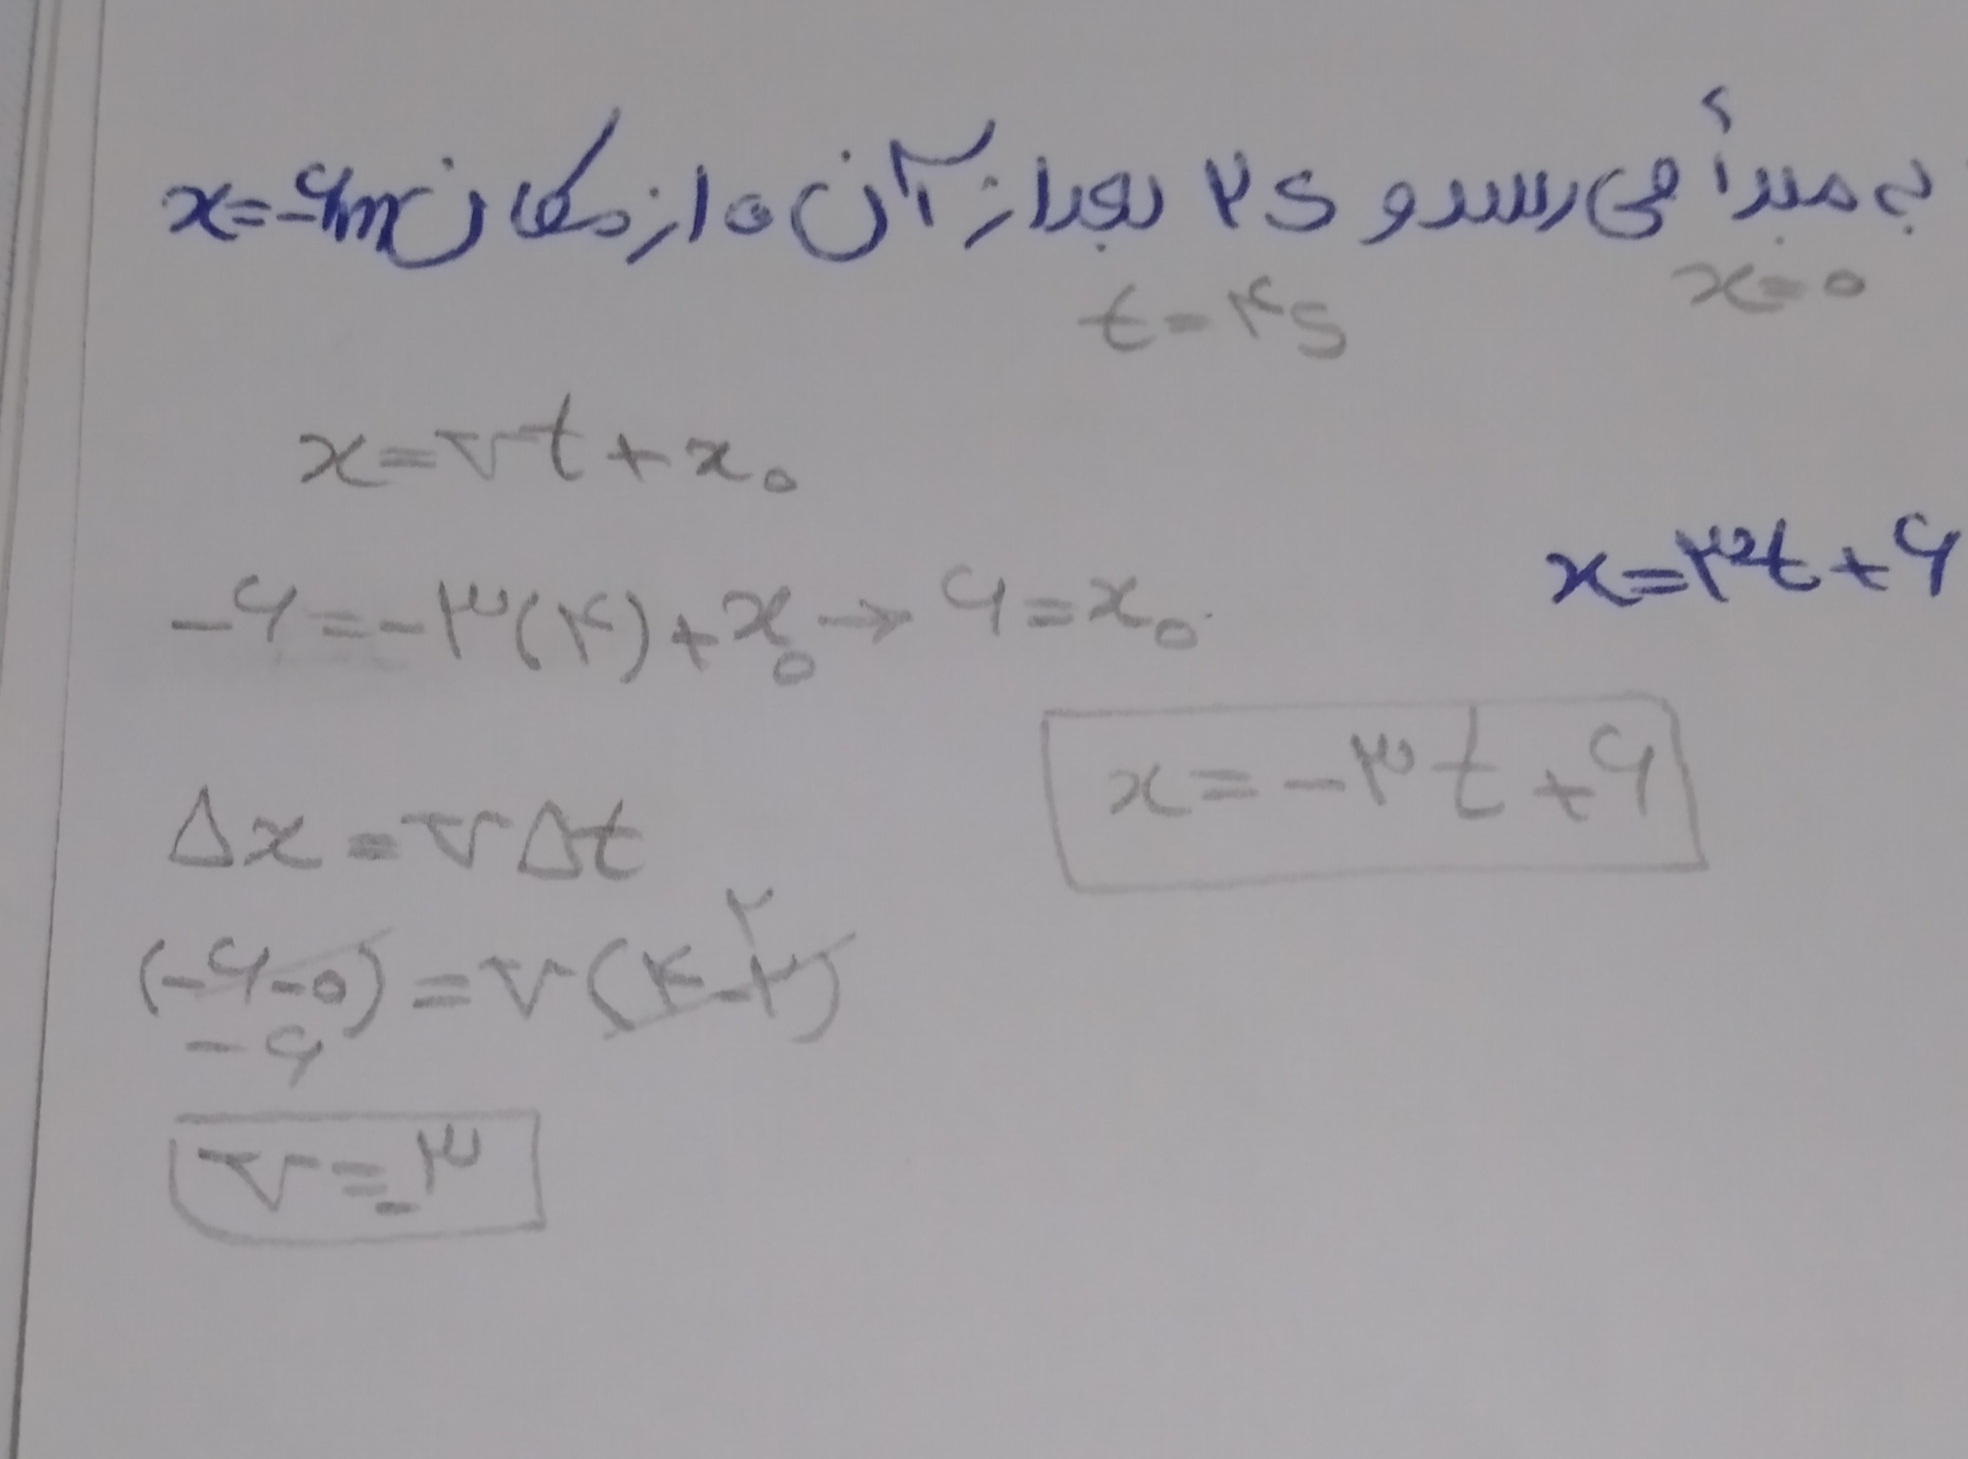 به مبدأ می رسد و ۲s بعد از آن ، از مکان x=-۶m
x=۰
t=۴s
x=vt+x₀
-۶=-۳(۴)+x₀ → ۶=x₀
x=۳t+۶
x=-۳t+۶
Δx=vΔt
(-۶-۰)=v(۴-۲)
۲
-۶
v=-۳